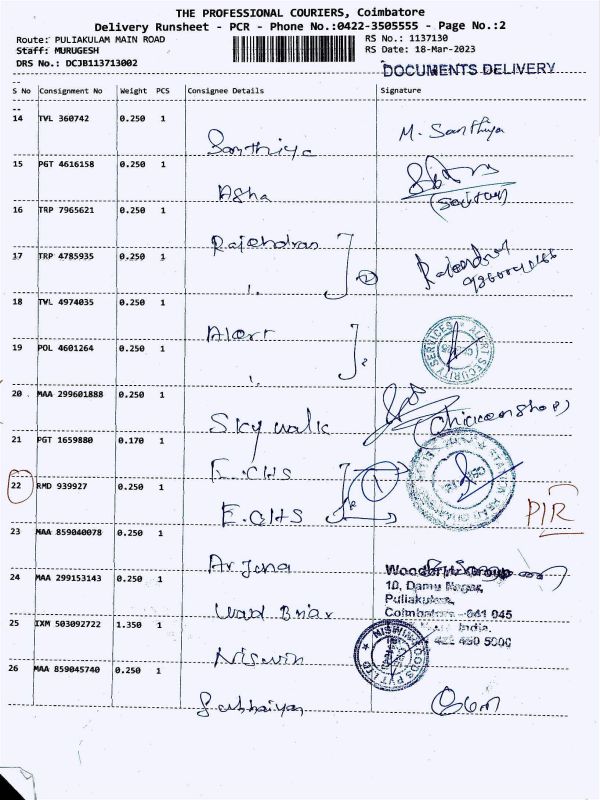 THE PROFESSIONAL COURIERS, Coimbatore
Delivery Runsheet - PCR - Phone No.:0422-3505555 - Page No.:2
Route: PULIAKULAM MAIN ROAD
RS No.: 1137130
Staff: MURUGESH
RS Date: 18-Mar-2023
DRS No.: DCJB113713002
DOCUMENTS DELIVERY
S No Consignment No Weight PCS Consignee Details Signature
14 TVL 360742 0.250 1
Santhiya M. Santhiya
15 PGT 4616158 0.250 1
Asha
16 TRP 7965621 0.250 1
Rajendran
17 TRP 4785935 0.250 1
2
18 TVL 4974035 0.250 1
Alert
19 POL 4601264 0.250 1
2
ALERT SECURITY SERVICES
20 MAA 299601888 0.250 1
Sky walk (Chickenshop)
21 PGT 1659880 0.170 1
E.CHS
22 RMD 939927 0.250 1
E.CHS 1 PIR
23 MAA 859040078 0.250 1
Arjuna
24 MAA 299153143 0.250 1
10, Damu Nagar,
Puliakulam,
Coimbatore - 641 045
India.
Ward Briar
25 IXM 503092722 1.350 1
Niswin
26 MAA 859045740 0.250 1